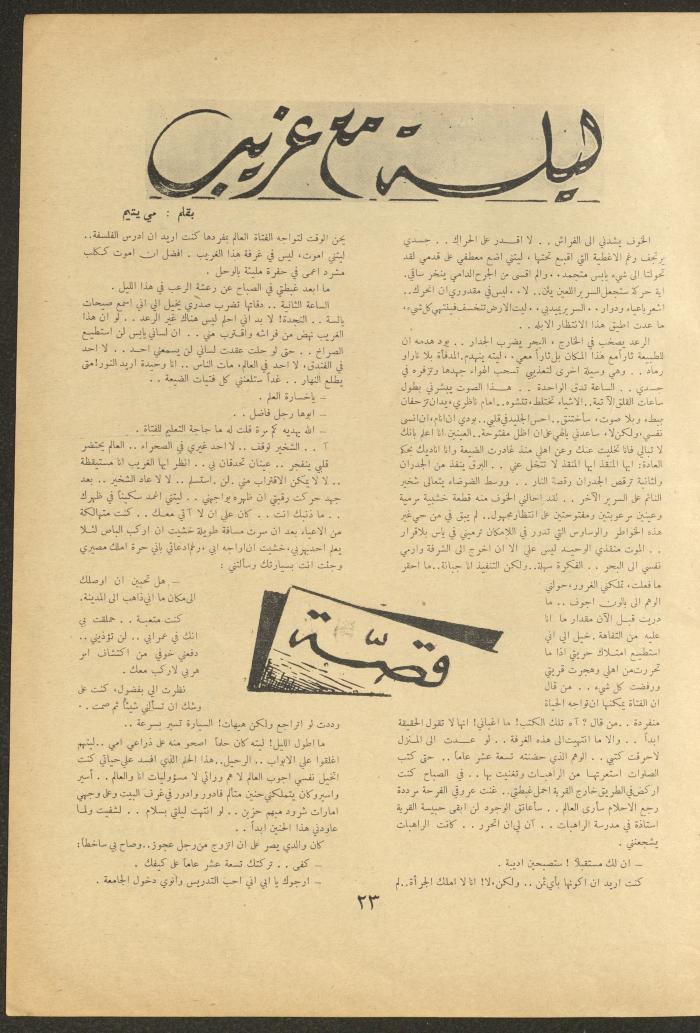 ليلة مع غريب
بقلم : مي يتيم
الخوف يشدني الى الفراش . . لا اقدر على الحراك . . جسدي
يرتجف رغم الاغطية التي اقبع تحتها ، ليتني اضع معطفي على قدمي لقد
تحولتا الى شيء يابس متجمد ، والم اقسى من الجرح الدامي ينخر ساقي.
اية حركة ستجعل السرير اللعين يئن.. لا ، ليس في مقدوري ان اتحرك..
اشعر باعياء ودوار.. السرير يميد بي ، ليت الارض تنخسف فينتهي كل شيء،
ما عدت اطيق هذا الانتظار الابله . .
الرعد يصخب في الخارج ، البحر يضرب الجدار .. بود هدمه ان
للطبيعة ثاراً مع هذا المكان بل ثاراً معي ، ليته ينهدم. المدفأة بلا نار او
رماد . . وهي وسيلة اخرى لتعذيبي تسحب الهواء جهدها وتزفره في
جسدي . . الساعة تدق الواحدة . . هذا الصوت يبشرني بطول
ساعات القلق الآتية.. الاشياء تختلط، تتشوه.. امام ناظري، يدان تزحفان
ببطء وبلا صوت، سأختنق.. احس الجليد في قلبي.. بودي ان انام، ان انسى
نفسي، ولكن لا، ساعدني ياالهي على ان اظل مفتوحة.. العينين. انا اعلم بانك
لا تبالي فانا تخليت عنك وعن اهلي منذ غادرت الضيعة وانا اناديك بحكم
العادة: ايها المنقذ ايها المنقذ لا تتخل عني . . البرق ينفذ من الجدران
ولثانية ترقص الجدران رقصة النار . . ووسط الضوضاء يتعالى شخير
النائم على السرير الآخر . . لقد احالني الخوف منه قطعة خشبية مرمية
وعينين مرعوبتين ومفتوحتين على انتظار مجهول.. لم يبق في من حي غير
هذه الخواطر والوساوس التي تدور في اللامكان ترميني في يأس بلا قرار
. . الموت منقذي الوحيد ليس علي الا ان اخرج الى الشرفة وارمي
نفسي الى البحر . . الفكرة سهلة.. ولكن التنفيذ انا جبانة.. ما احقر
ما فعلت، تملكني الغرور، حولني
الوهم الى بالون اجوف .. ما
دريت قبل الآن مقدار ما انا
عليه من التفاهة. خيل الي اني
استطيع امتلاك حريتي اذا ما
تحررت من اهلي وهجرت قريتي
ورفضت كل شيء . . من قال
ان الفتاة يمكنها ان تواجه الحياة
منفردة . . من قال ؟ آه تلك الكتب! ما اغباني! انها لا تقول الحقيقة
ابداً . . والا ما انتهيت الى هذه الغرفة . . لو عدت الى المنزل
لاحرقت كتبي . . الوهم الذي حضنته تسعة عشر عاماً .. حتى كتب
الصلوات استعرتها من الراهبات وتغنيت بها . . في الصباح كنت
اركض في الطريق خارج القرية احمل غبطتي.. غنت عروقي الفرحة مرددة
رجع الاحلام سأرى العالم . . سأعانق الوجود لن ابقى حبيسة القرية
استاذة في مدرسة الراهبات . . آن لي ان اتحرر . . كانت الراهبات
يشجعنني .
— ان لك مستقبلا ! ستصبحين اديبة .
كنت اريد ان اكونها بأي ثمن . . ولكن، لا! انا لا املك الجرأة.. لم
يحن الوقت لتواجه الفتاة العالم بمفردها كنت اريد ان ادرس الفلسفة..
ليتني اموت، ليس في غرفة هذا الغريب . افضل ان اموت ككلب
مشرد اعمى في حفرة مليئة بالوحل .
ما ابعد غبطتي في الصباح عن رعشة الرعب في هذا الليل .
الساعة الثانية .. دقاتها تضرب صدري يخيل الي اني اسمع صيحات
يائسة . . النجدة! لا بد اني احلم ليس هناك غير الرعد . . لو ان هذا
الغريب نهض من فراشه واقترب مني . . ان لساني يابس لن استطيع
الصراخ . . حتى لو حلت عقدت لساني لن يسمعني احد . . لا احد
في الفندق، لا احد في العالم، مات الناس . . انا وحيدة اريد النور! متى
يطلع النهار . . غداً ستلعنني كل فتيات الضيعة ..
— ياخسارة العلم .
— ابوها رجل فاضل . .
— الله يهديه كم مرة قلت له ما حاجة التعليم للفتاة .
آ . . الشخير توقف .. لا احد غيري في الصحراء .. العالم يحتضر
قلبي ينفجر .. عينان تحدقان بي . . انظر ايها الغريب انا مستيقظة
.. لا لا يمكن الاقتراب مني . لن استسلم .. لا لا عاد الشخير .. بعد
جهد حركت رقبتي ان ظهره يواجهني . . ليتني اغمد سكيناً في ظهرك
. . ما ذنبك انت . . كان علي ان لا آتي معك . . كنت متهالكة
من الاعياء بعد ان سرت مسافة طويلة خشيت ان اركب الباص لئلا
يعلم احد بهربي، خشيت ان اواجه ابي، رغم ادعائي باني حرة املك مصيري
وجئت انت بسيارتك وسألتني :
— هل تحبين ان اوصلك
الى مكان ما اني ذاهب الى المدينة.
كنت متعبة . . حملقت بي
انك في عمر ابي .. لن تؤذيني ..
دفعني خوفي من اكتشاف امر
هربي لاركب معك .
نظرت الي بفضول، كنت على
وشك ان تسألني شيئاً ثم صمت . .
وددت لو اتراجع ولكن هيهات! السيارة تسير بسرعة ..
ما اطول الليل! ليته كان حلماً اصحو منه على ذراعي امي.. ليتهم
اغلقوا علي الابواب . . الرحيل.. هذا الحلم الذي افسد علي حياتي كنت
اتخيل نفسي اجوب العالم لا هم ورائي لا مسؤوليات انا والعالم .. أسير
واسير وكان يتملكني حنين متألم فادور وادور في غرف البيت وعلى وجهي
امارات شرود مبهم حزين .. لو انتهت ليلتي بسلام . . لشفيت ولما
عاودني هذا الحنين ابداً . .
كان والدي يصر على ان اتزوج من رجل عجوز.. وصاح بي ساخطاً:
— كفى . . تركتك تسعة عشر عاماً على كيفك .
— ارجوك يا ابي اني احب التدريس وانوي دخول الجامعة .
قصّة
٢٣